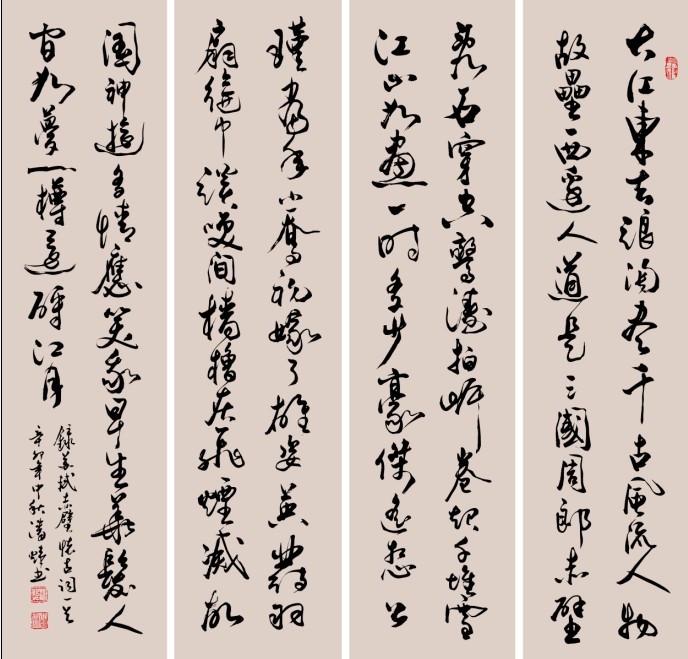 大江東去浪淘尽千古風流人物
故壘西邊人道是三國周郎赤壁
亂石穿空驚濤拍岸卷起千堆雪
江山如畫一時多少豪傑遙想公
瑾當年小喬初嫁了雄姿英發羽
扇綸巾談笑間檣櫓灰飛煙滅故
國神遊多情應笑我早生華髮人
間如夢一樽還酹江月
錄蘇軾赤壁懷古詞一首
辛卯年中秋潘書